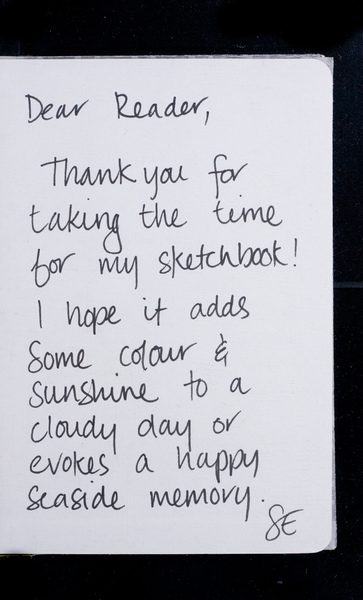 Dear Reader,
Thank you for
taking the time
for my sketchbook!
I hope it adds
some colour &
sunshine to a
cloudy day or
evokes a happy
seaside memory.
SE